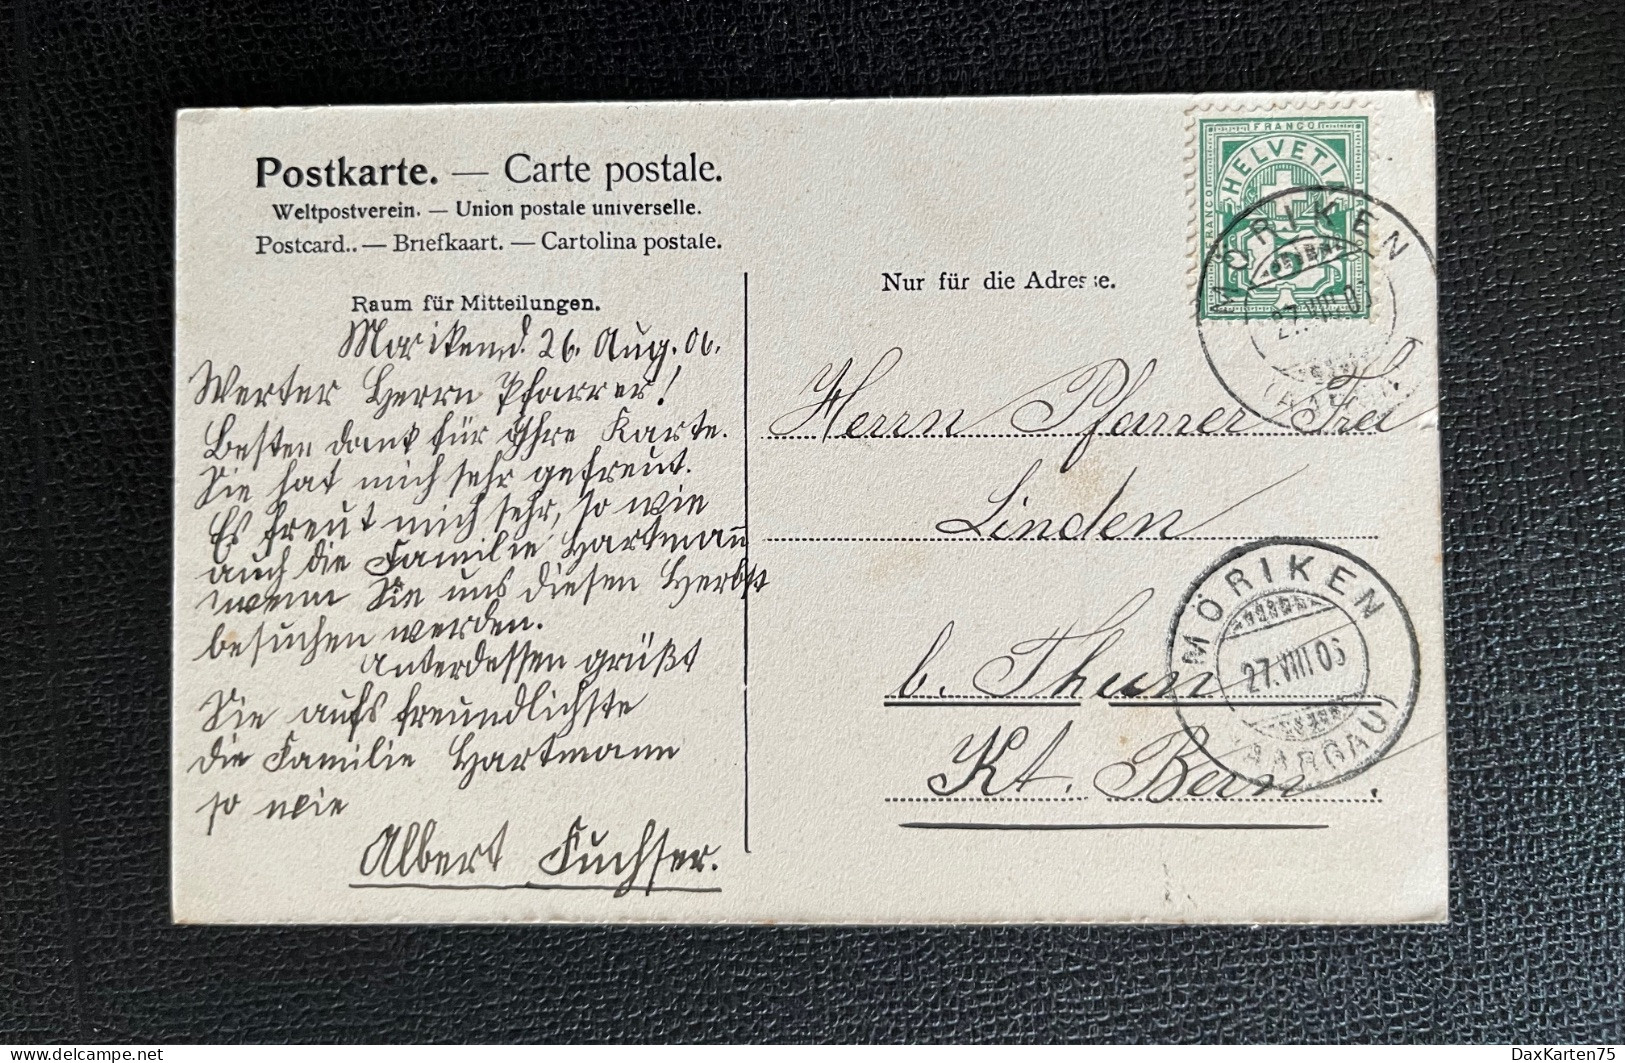 Postkarte. — Carte postale.
Weltpostverein. — Union postale universelle.
Postcard.. — Briefkaart. — Cartolina postale.
Raum für Mitteilungen.
Nur für die Adresse.
FRANCO
FRANCO
HELVETIA
MÖRIKEN
27.VIII.06
(AARGAU)
Morikend. 26. Aug. 06.
Werter Herrn Pfarrer!
Besten dank für Ihre Karte.
Sie hat mich sehr gefreut.
Es freut mich sehr, so wie
auch die Familie Hartmann
wenn Sie uns diesen Herbst
besuchen werden.
Unterdessen grüßt
Sie aufs freundlichste
die Familie Hartmann
so wie
Albert Fuchser.
Herrn Pfarrer Frei
Linden
b. Thun
Kt. Bern.
MÖRIKEN
27.VIII.06
(AARGAU)
DaxKarten75
delcampe.net